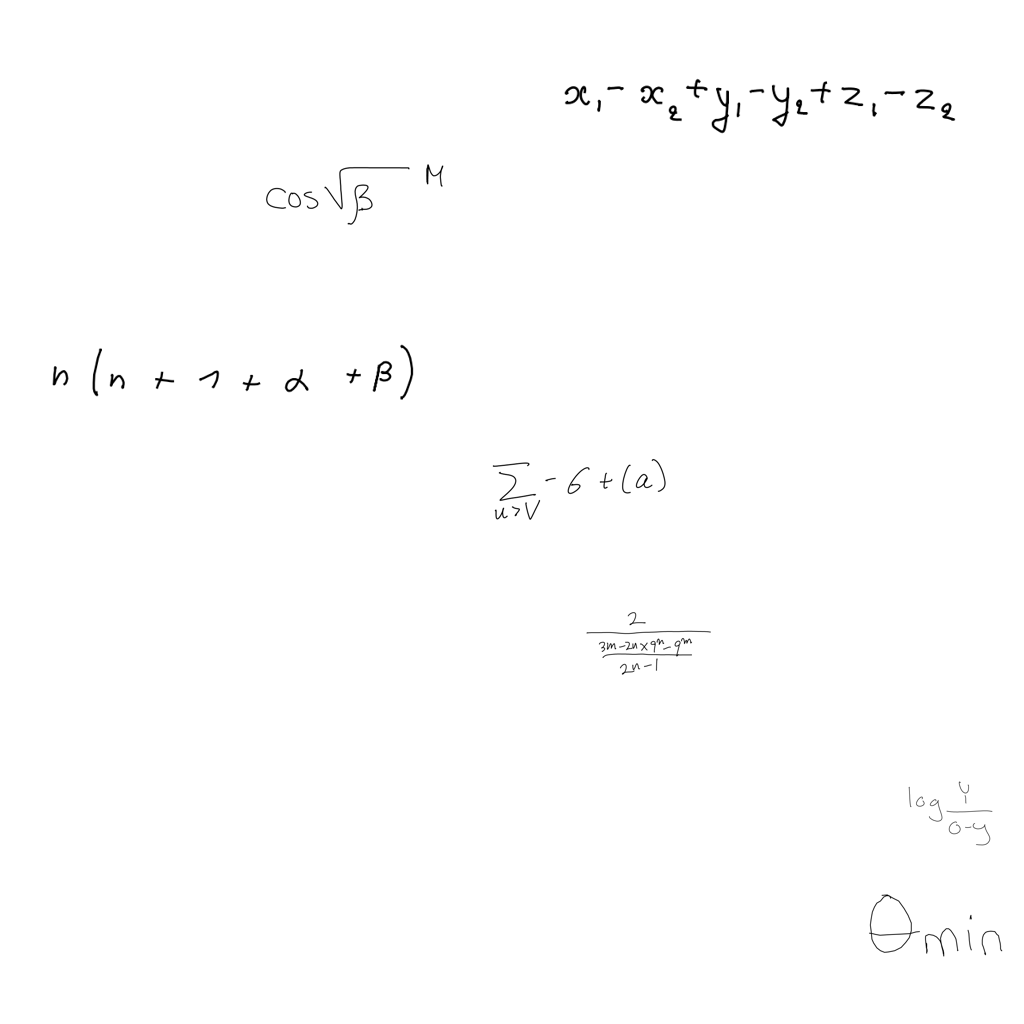 x₁ - x₂ + y₁ - y₂ + z₁ - z₂
cos√β ᴹ
n (n + 1 + α + β)
∑_{u>V} - 6 + (a)
\frac{2}{\frac{3m-2n×9^n-9^m}{2n-1}}
log \frac{Y}{0-y}
θ_{min}